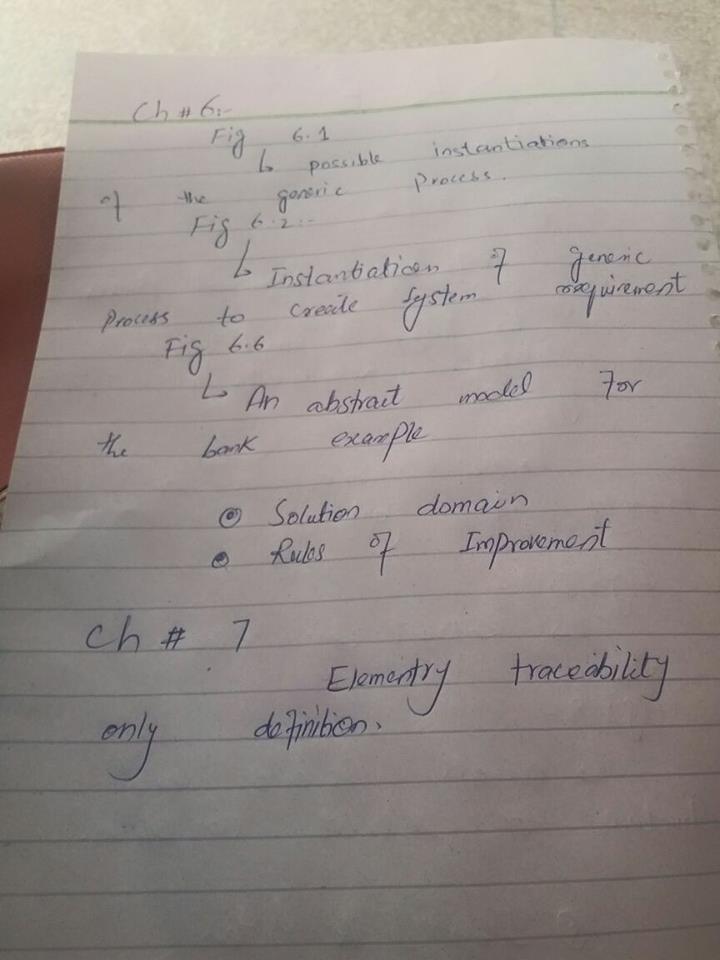 Ch # 6:-
Fig 6.1
↳ possible instantiations
of the generic process.
Fig 6.2:-
↳ Instantiation of generic
Process to create system requirement
Fig 6.6
↳ An abstract model for
the bank example
⦿ Solution domain
⦿ Rules of Improvement
Ch # 7
Elementry traceability
only definition.